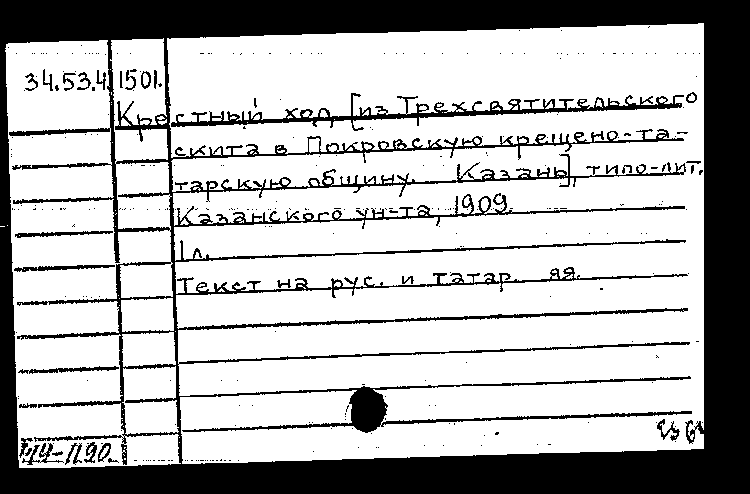 34.53.4. 1501.
Крестный ход, [из Трехсвятительского
скита в Покровскую крещено-та-
тарскую общину. Казань], типо-лит.
Казанского ун-та, 1909.
1 л.
Текст на рус. и татар. яя.
44-1190.